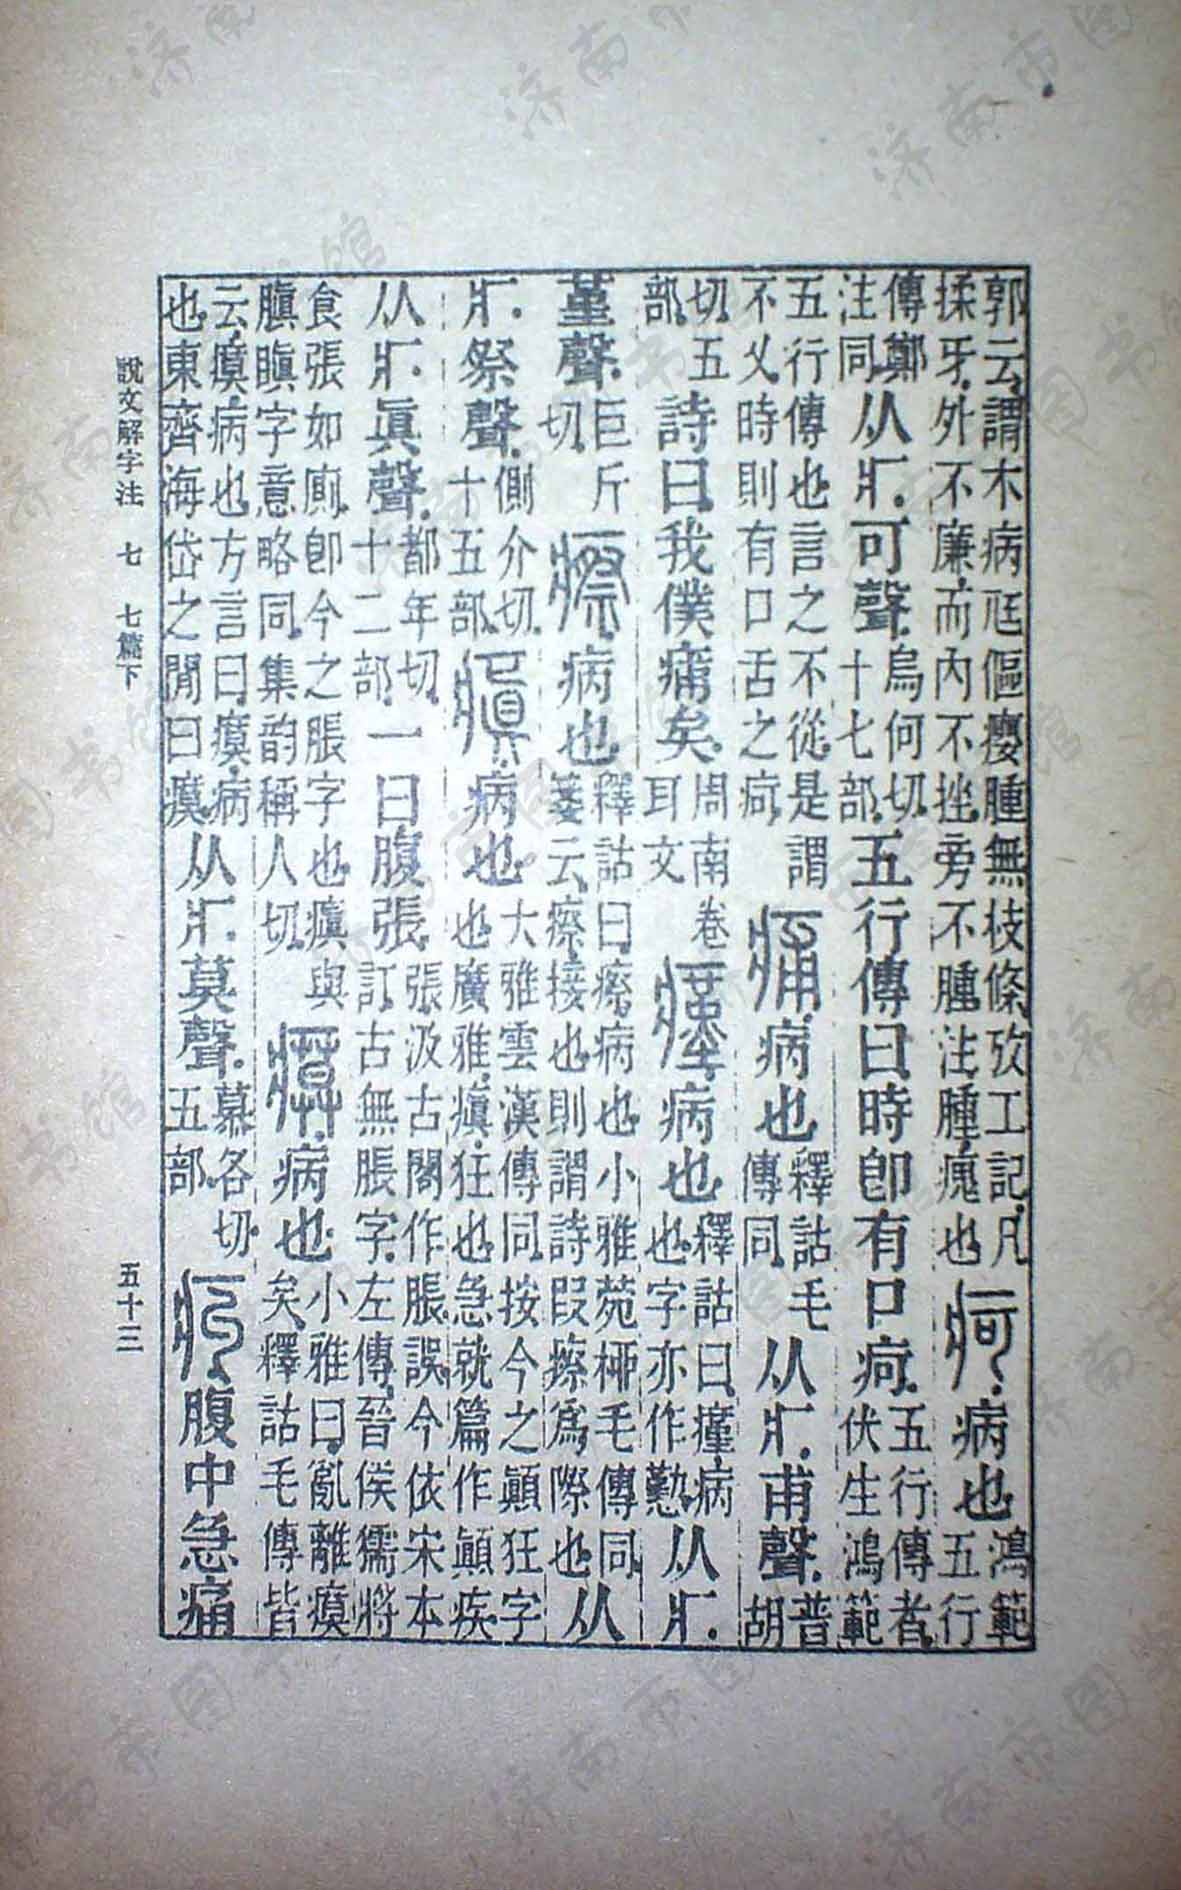 郭云謂木病尫傴癭腫無枝條攷工記凡
揉牙外不廉而內不挫旁不腫注腫瘣也
疴病也
鴻範
五行
傳鄭
注同
从疒可聲
烏何切
十七部
五行傳曰時卽有口痾
五行傳者
伏生鴻範
五行傳也言之不從是謂
不乂時則有口舌之痾
痡病也
釋詁毛
傳同
从疒甫聲
普
胡
切五
部
詩曰我僕痡矣
周南卷
耳文
瘽病也
釋詁曰瘽病
也字亦作懃
从疒
堇聲
巨斤
切
瘵病也
釋詁曰瘵病也小雅菀桺毛傳同
箋云瘵接也則謂詩叚瘵爲際也
从
疒祭聲
側介切
十五部
瘨病也
大雅雲漢傳同按今之顚狂字
也廣雅瘨狂也急就篇作顚疾
从疒眞聲
都年切
十二部
一曰腹張
張汲古閣作脹誤今依宋本
訂古無脹字左傳晉侯獳將
食張如廁卽今之脹字也瘨與
䐜瞋字意略同集韵稱人切
瘼病也
小雅曰亂離瘼
矣釋詁毛傳皆
云瘼病也方言曰瘼病
也東齊海岱之閒曰瘼
从疒莫聲
慕各切
五部
㽱腹中急痛
說文解字注 七 七篇下 五十三
济南市图书馆